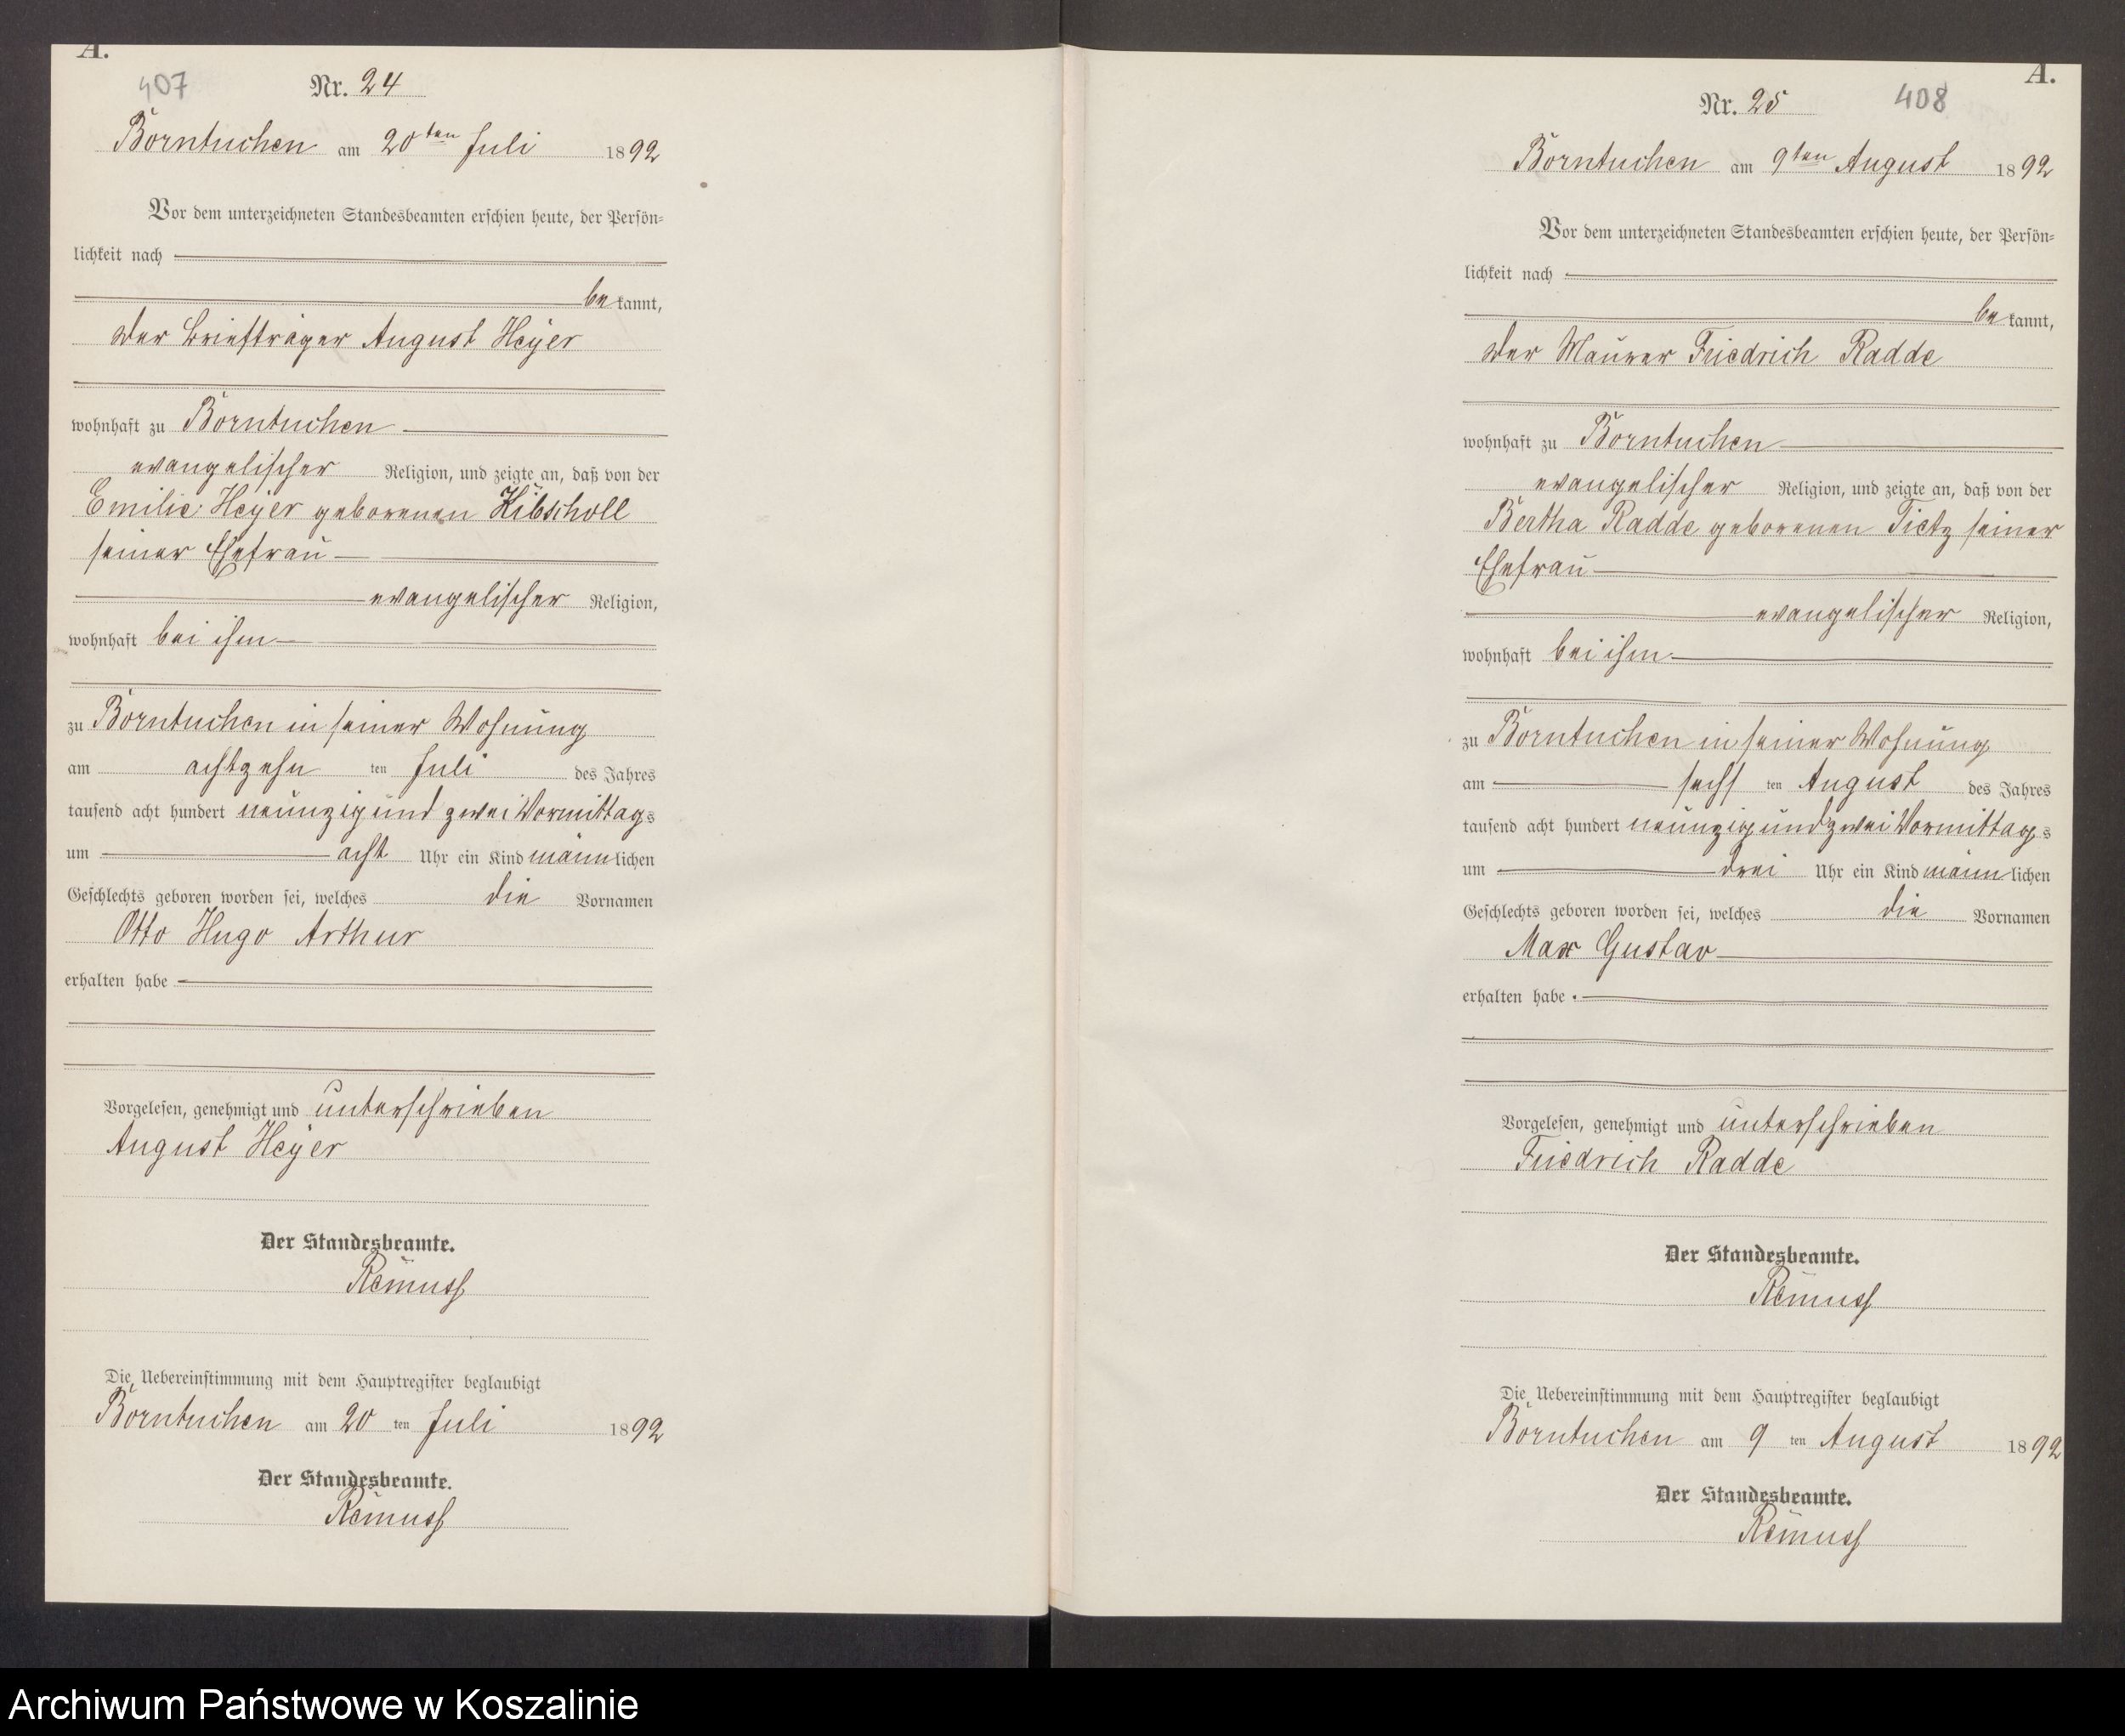 A.
407
Nr. 24
Borntuchen am 20ten Juli 1892
Vor dem unterzeichneten Standesbeamten erschien heute, der Persön-
lichkeit nach
bekannt,
der Briefträger August Heyer
wohnhaft zu Borntuchen
evangelischer Religion, und zeigte an, daß von der
Emilie Heyer geborenen Kibscholl
seiner Ehefrau
evangelischer Religion,
wohnhaft bei ihm
zu Borntuchen in seiner Wohnung
am achtzehn ten Juli des Jahres
tausend acht hundert neunzig und zwei Vormittags
um acht Uhr ein Kind männlichen
Geschlechts geboren worden sei, welches die Vornamen
Otto Hugo Arthur
erhalten habe
Vorgelesen, genehmigt und unterschrieben
August Heyer
Der Standesbeamte.
Remuss
Die Uebereinstimmung mit dem Hauptregister beglaubigt
Borntuchen am 20 ten Juli 1892
Der Standesbeamte.
Remuss
A.
408
Nr. 25
Borntuchen am 9ten August 1892
Vor dem unterzeichneten Standesbeamten erschien heute, der Persön-
lichkeit nach
bekannt,
der Maurer Friedrich Radde
wohnhaft zu Borntuchen
evangelischer Religion, und zeigte an, daß von der
Bertha Radde geborenen Tietz seiner
Ehefrau
evangelischer Religion,
wohnhaft bei ihm
zu Borntuchen in seiner Wohnung
am sechs ten August des Jahres
tausend acht hundert neunzig und zwei Vormittags
um drei Uhr ein Kind männlichen
Geschlechts geboren worden sei, welches die Vornamen
Max Gustav
erhalten habe.
Vorgelesen, genehmigt und unterschrieben
Friedrich Radde
Der Standesbeamte.
Remuss
Die Uebereinstimmung mit dem Hauptregister beglaubigt
Borntuchen am 9 ten August 1892
Der Standesbeamte.
Remuss
Archiwum Państwowe w Koszalinie